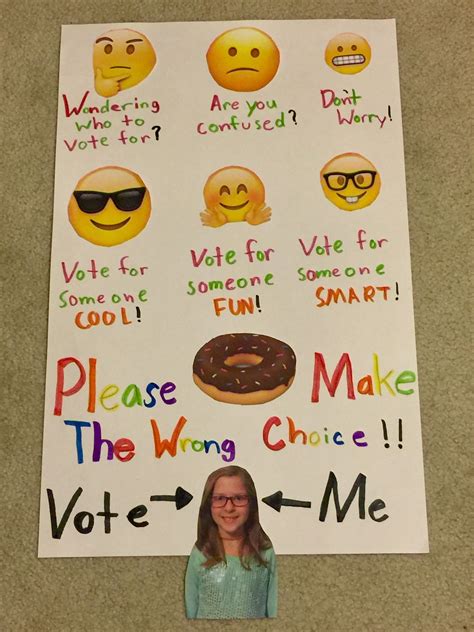 Wondering
who to
vote for?
Are you
confused?
Don't
Worry!
Vote for
someone
COOL!
Vote for
someone
FUN!
Vote for
someone
SMART!
Please Make
The Wrong Choice!!
Vote → ← Me